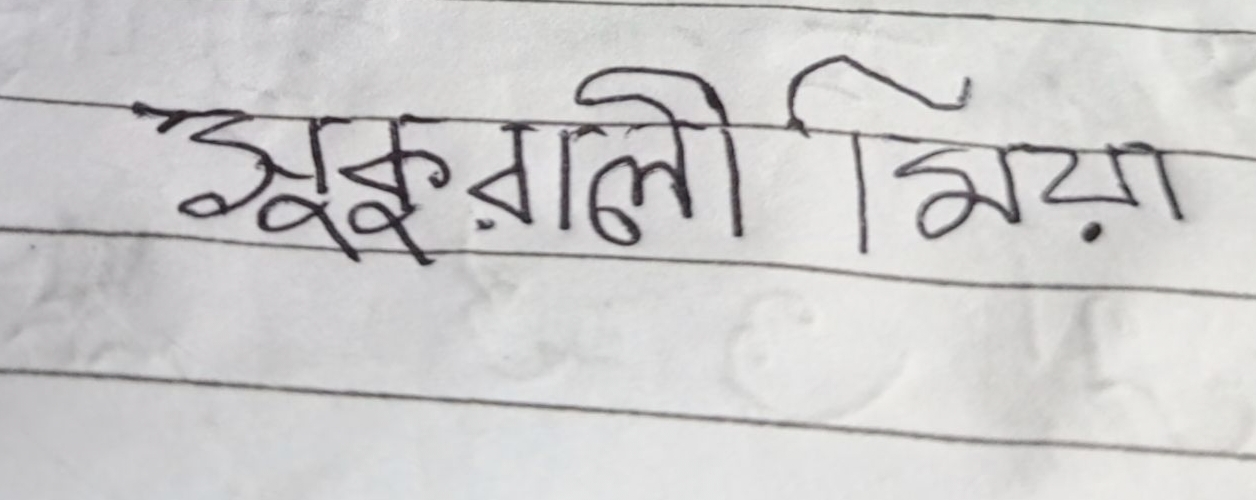 সুকুরালী মিয়া